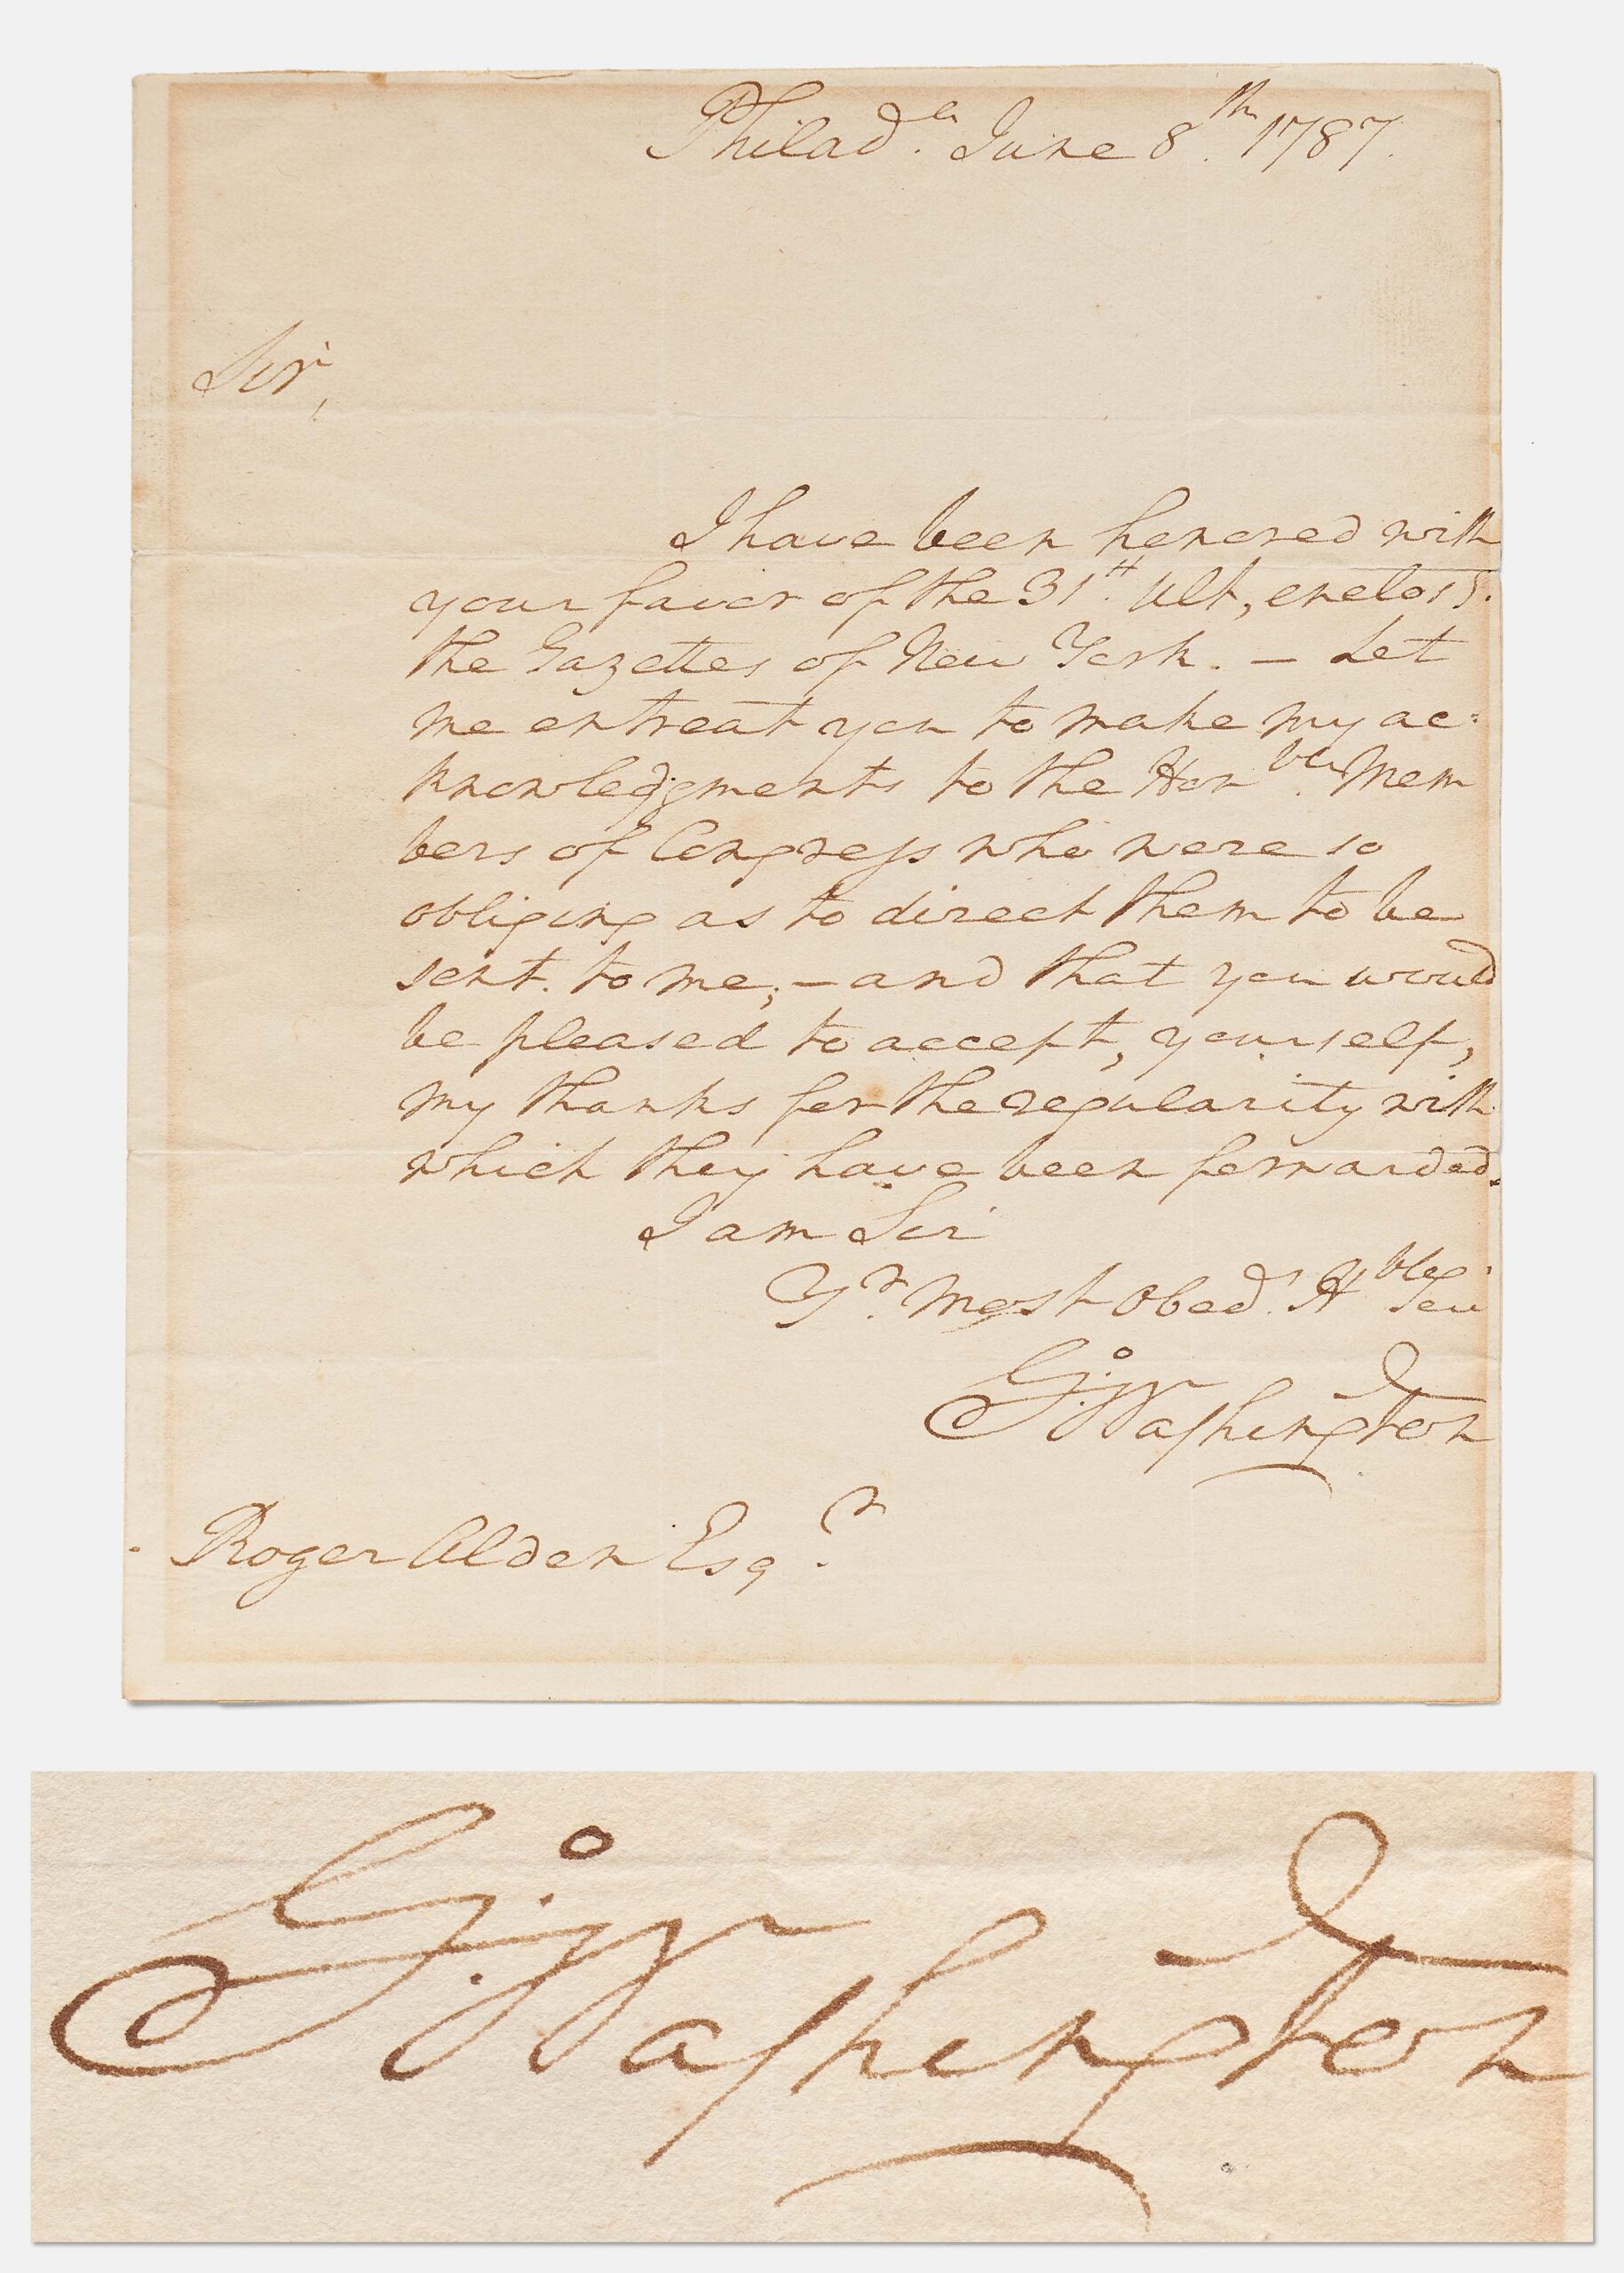 Philad.a June 8.th 1787.
Sir,
I have been honored with
your favor of the 31.st Ult, enclos.g
the Gazettes of New York. — Let
me entreat you to make my ac:
knowledgments to the Hon.ble Mem
bers of Congress who were so
obliging as to direct them to be
sent to me; — and that you would
be pleased to accept, yourself,
my thanks for the regularity with
which they have been forwarded.
I am Sir
Y.r Most Obed.t H.ble Ser
G:o Washington
Roger Alden Esq.r
G:o Washington